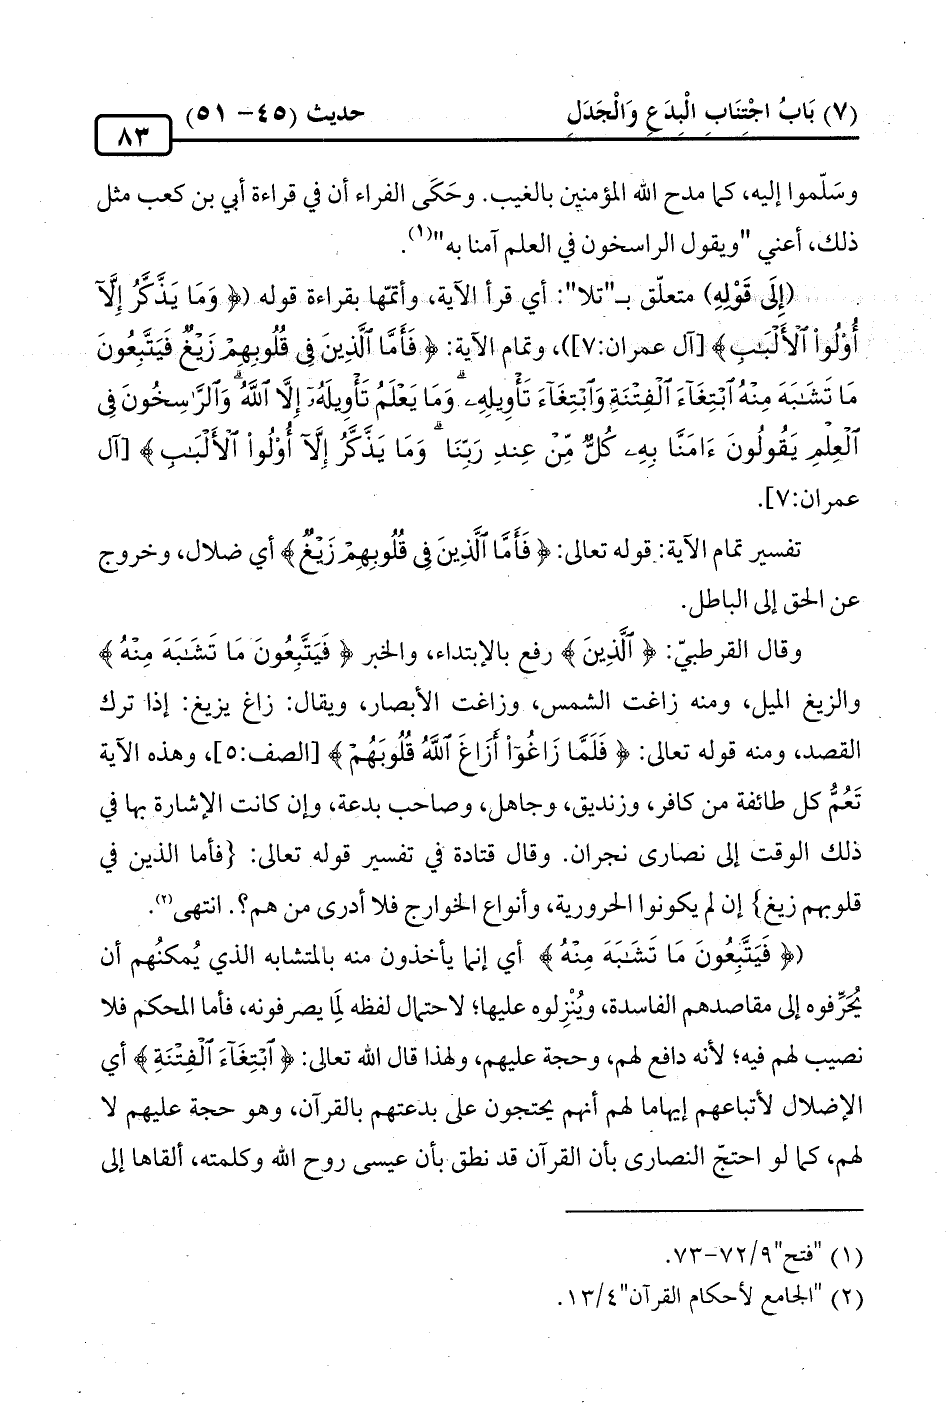 (٧) بَابُ اجْتِنَابِ الْبِدَعِ وَالْجَدَلِ حديث (٤٥- ٥١)
٨٣
وسَلّموا إليه، كما مدح الله المؤمنين بالغيب. وحَكَى الفراء أن في قراءة أبي بن كعب مثل
ذلك، أعني "ويقول الراسخون في العلم آمنا به"(١).
(إِلَى قَوْلِهِ) متعلّق بـ"تلا": أي قرأ الآية، وأتمّها بقراءة قوله (﴿ وَمَا يَذَّكَّرُ إِلَّآ
أُوْلُواْ ٱلْأَلْبَٰبِ ﴾ [آل عمران:٧])، وتمام الآية: ﴿ فَأَمَّا ٱلَّذِينَ فِى قُلُوبِهِمْ زَيْغٌ فَيَتَّبِعُونَ
مَا تَشَٰبَهَ مِنْهُ ٱبْتِغَآءَ ٱلْفِتْنَةِ وَٱبْتِغَآءَ تَأْوِيلِهِۦ ۗ وَمَا يَعْلَمُ تَأْوِيلَهُۥٓ إِلَّا ٱللَّهُ ۗ وَٱلرَّٰسِخُونَ فِى
ٱلْعِلْمِ يَقُولُونَ ءَامَنَّا بِهِۦ كُلٌّ مِّنْ عِندِ رَبِّنَا ۗ وَمَا يَذَّكَّرُ إِلَّآ أُوْلُواْ ٱلْأَلْبَٰبِ ﴾ [آل
عمران:٧].
تفسير تمام الآية: قوله تعالى: ﴿ فَأَمَّا ٱلَّذِينَ فِى قُلُوبِهِمْ زَيْغٌ ﴾ أي ضلال، وخروج
عن الحق إلى الباطل.
وقال القرطبيّ: ﴿ ٱلَّذِينَ ﴾ رفع بالإبتداء، والخبر ﴿ فَيَتَّبِعُونَ مَا تَشَٰبَهَ مِنْهُ ﴾
والزيغ الميل، ومنه زاغت الشمس، وزاغت الأبصار، ويقال: زاغ يزيغ: إذا ترك
القصد، ومنه قوله تعالى: ﴿ فَلَمَّا زَاغُوٓاْ أَزَاغَ ٱللَّهُ قُلُوبَهُمْ ﴾ [الصف:٥]، وهذه الآية
تَعُمُّ كل طائفة من كافر، وزنديق، وجاهل، وصاحب بدعة، وإن كانت الإشارة بها في
ذلك الوقت إلى نصارى نجران. وقال قتادة في تفسير قوله تعالى: {فأما الذين في
قلوبهم زيغ} إن لم يكونوا الحرورية، وأنواع الخوارج فلا أدرى من هم؟. انتهى(٢).
(﴿ فَيَتَّبِعُونَ مَا تَشَٰبَهَ مِنْهُ ﴾ أي إنما يأخذون منه بالمتشابه الذي يُمكنُهم أن
يُحَرِّفوه إلى مقاصدهم الفاسدة، ويُنْزِلوه عليها؛ لاحتمال لفظه لِمَا يصرفونه، فأما المحكم فلا
نصيب لهم فيه؛ لأنه دافع لهم، وحجة عليهم، ولهذا قال الله تعالى: ﴿ ٱبْتِغَآءَ ٱلْفِتْنَةِ ﴾ أي
الإضلال لأتباعهم إيهاما لهم أنهم يحتجون على بدعتهم بالقرآن، وهو حجة عليهم لا
لهم، كما لو احتجّ النصارى بأن القرآن قد نطق بأن عيسى روح الله وكلمته، ألقاها إلى
(١) "فتح"٩/ ٧٢-٧٣.
(٢) "الجامع لأحكام القرآن"٤/ ١٣.